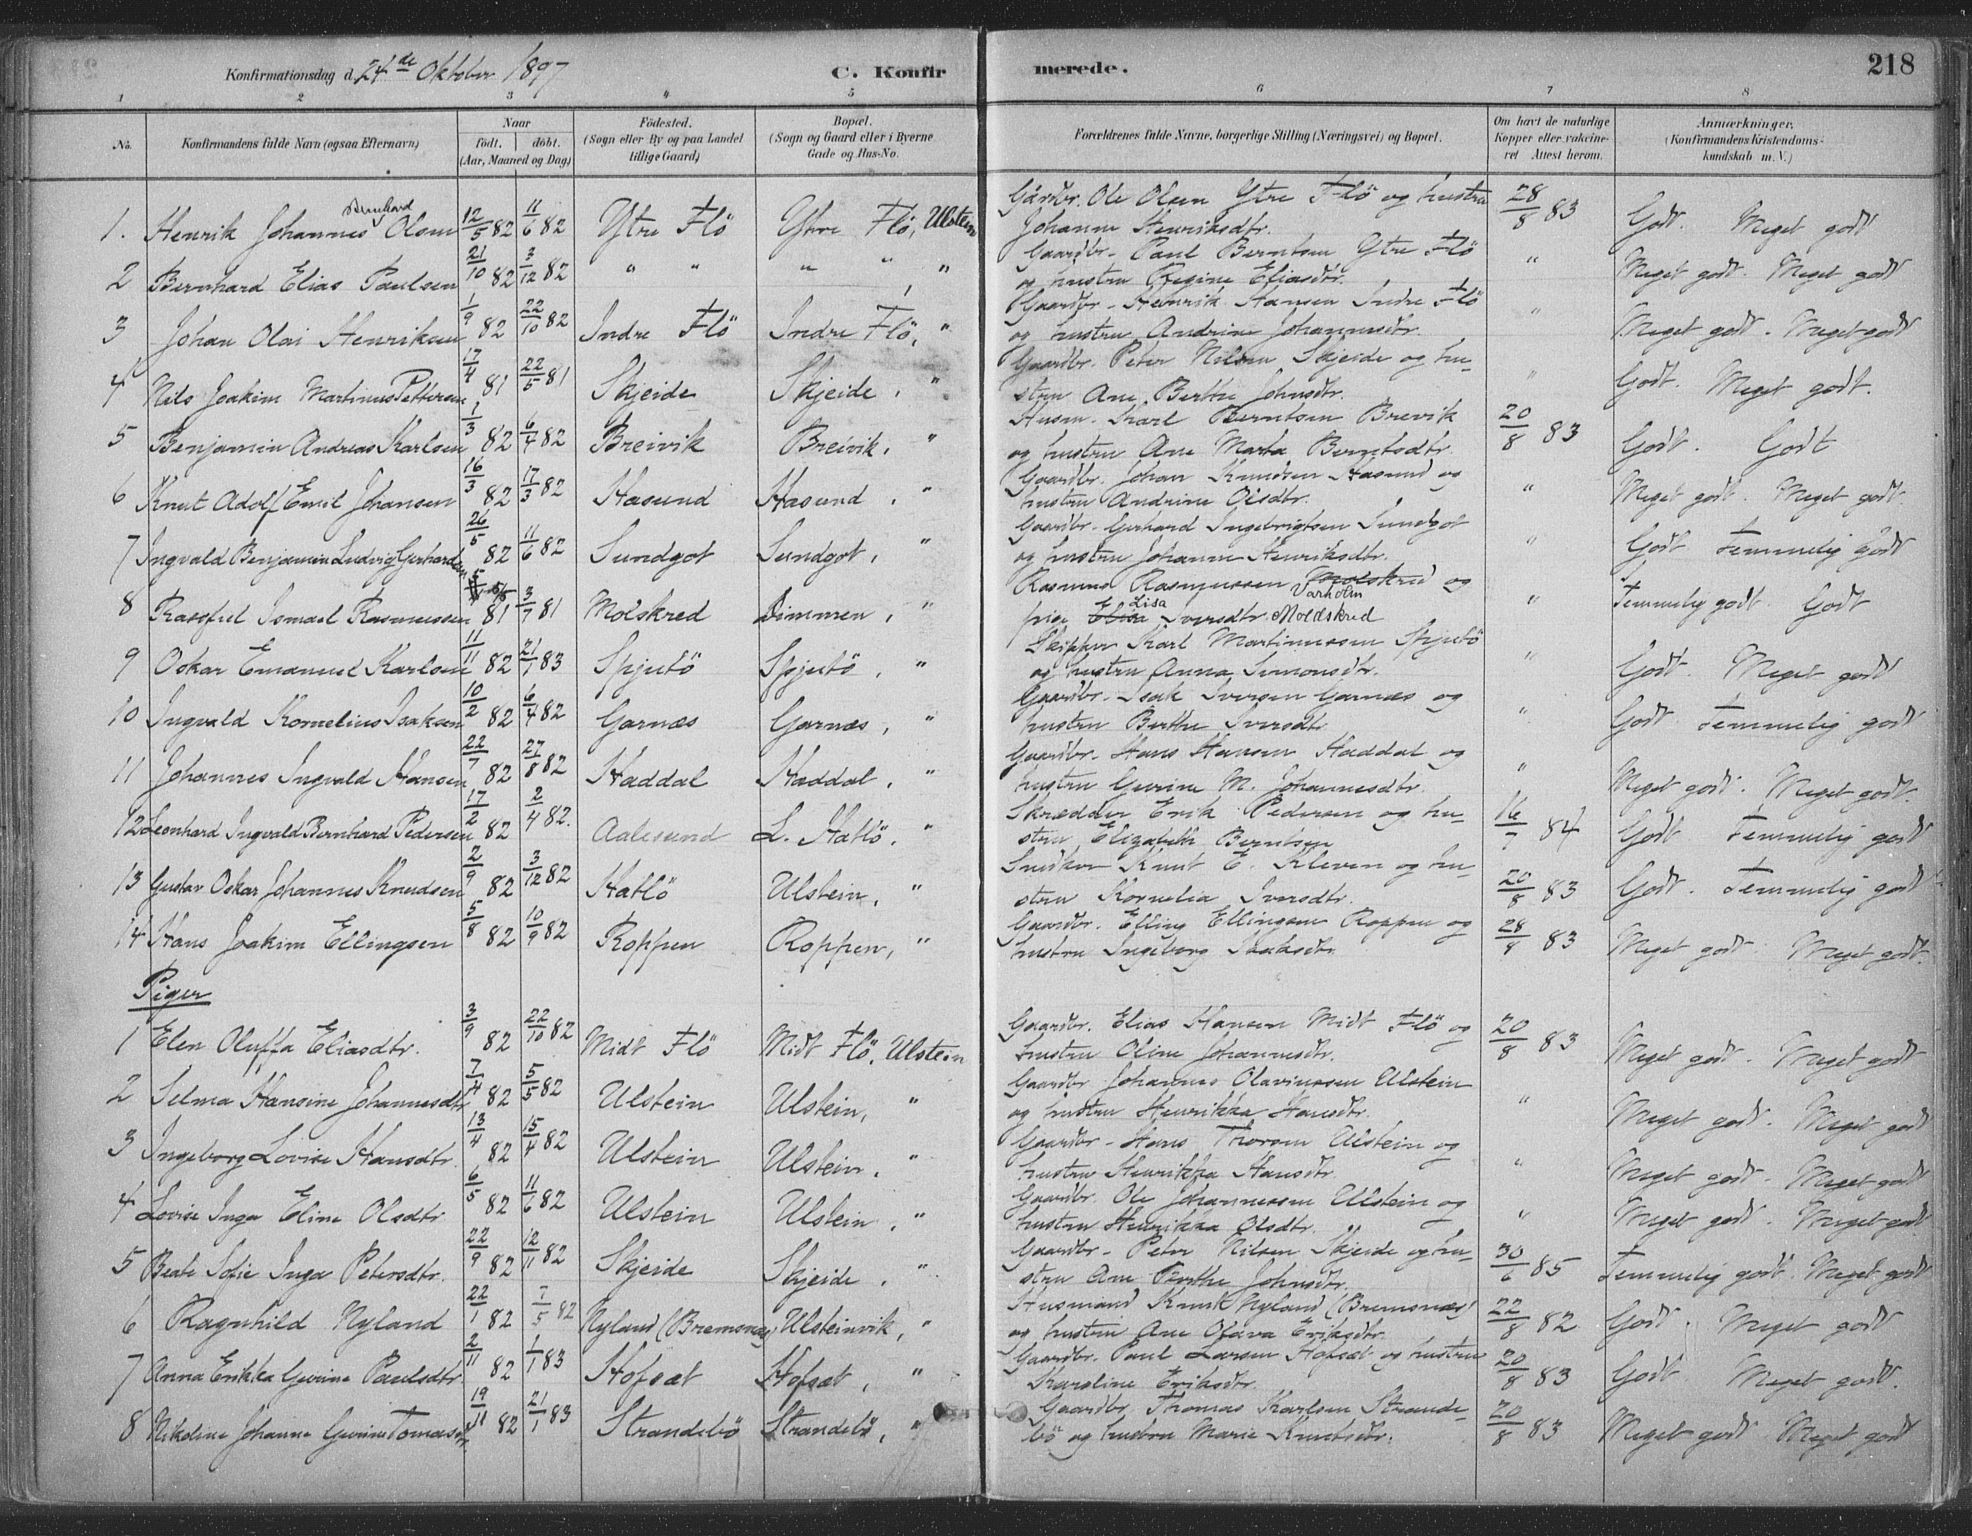 Konfirmationsdag d. 24de Oktober 1897 C. Konfirmerede. 218
1 2 3 4 5 6 7 8
No. Konfirmandens fulde Navn (ogsaa Efternavn) Naar födt. döbt. (Aar, Maaned og Dag) Födested. (Sogn eller By og paa Landet tillige Gaard) Bopæl. (Sogn og Gaard eller i Byerne Gade og Hus-No. Forældrenes fulde Navne, borgerlige Stilling (Næringsvei) og Bopæl. Om havt de naturlige Kopper eller vakcineret Attest herom. Anmærkninger. (Konfirmandens Kristendomskundskab m. V.)
1. Henrik Johannes Bernhard Olsen 12/5 82 11/6 82 Ytre Flö Ytre Flö, Ulstein Gårdbr. Ole Olsen Ytre Flö og hustru Johanne Henriksdtr. 28/8 83 Godt. Meget godt
2 Bernhard Elias Paulsen 21/10 82 3/12 82 " " " " " Gaardbr. Paul Berntsen Ytre Flö og hustru Regine Eliasdtr. " Meget godt. Meget godt
3 Johan Olai Henriksen 1/9 82 22/10 82 Indre Flö Indre Flö, " Gaardbr. Henrik Hansen Indre Flö og hustru Andrine Johannesdtr. " Meget godt. Meget godt
4 Nils Joakim Martinus Pettersen 17/4 81 22/5 81 Skjeide Skjeide, " Gaardbr. Peter Nilsen Skjeide og hustru Ane Berthe Johnsdtr. " Godt. Meget godt.
5 Benjamin Andreas Karlsen 1/3 82 6/4 82 Breivik Breivik, " Husm. Karl Berntsen Brevik og hustru Ane Marta Berntsdtr. 20/8 83 Godt. Godt
6 Knut Adolf Emil Johansen 16/3 82 17/3 82 Hasund Hasund, " Gaardbr. Johan Knudsen Hasund og hustru Andrine Olsdtr. " Meget godt. Meget godt.
7 Ingvald Benjamin Ludvig Gerhardsen 26/5 82 11/6 82 Sundgot Sundgot, " Gaardbr. Gerhard Ingebrigtsen Sundgot og hustru Johanne Henriksdtr. " Godt Temmelig godt
8 Ismael Rasmussen 81 3/7 81 Molskred Dimmen, " Rasmus Rasmussen Varholm og pige Lisa Iversdtr Moldskred " Temmelig godt Godt
9 Oskar Emanuel Karlsen 11/11 82 21/1 83 Spjutö Spjutö, " Skipper Karl Martinussen Spjutö og hustru Anna Simonsdtr. " Godt. Meget godt
10 Ingvald Kornelius Isaksen 10/2 82 6/4 82 Garnæs Garnæs, " Gaardbr. Isak Iversen Garnæs og hustru Berthe Iversdtr " Godt Temmelig godt
11 Johannes Ingvald Hansen 22/7 82 27/8 82 Haddal Haddal, " Gaardbr. Hans Hansen Haddal og hustru Gurine M. Johannesdtr. " Meget godt. Meget godt.
12 Leonhard Ingvald Bernhard Pedersen 17/2 82 2/4 82. Aalesund L. Hatlö, " Skrædder Erik Pedersen og hustru Elizabeth Berntsen 16/7 84 Godt Temmelig godt
13 Gustav Oskar Johannes Knudsen 2/9 82 3/12 82 Hatlö Ulstein, " Snedker Knut E. Kleven og hustru Kornelia Iversdtr. 20/8 83 Godt. Temmelig godt
14 Hans Joakim Ellingsen 5/8 82 10/9 82 Roppen Roppen, " Gaardbr. Elling Ellingsen Roppen og hustru Ingeborg Isaksdtr. 28/8 83 Meget godt. Meget godt.
Piger
1 Elen Oluffa Eliasdtr. 3/9 82 22/10 82 Midt Flö Midt Flö, Ulstein Gaardbr. Elias Hansen Midt Flö og hustru Oline Johannesdtr. 20/8 83 Meget godt. Meget godt
2 Selma Hansine Johannesdtr 7/4 82 5/5 82 Ulstein Ulstein, " Gaardbr Johannes Olavinssen Ulstein og hustru Henrikka Hansdtr. " Meget godt. Meget godt
3 Ingeborg Lovise Hansdtr. 13/4 82 15/4 82 Ulstein Ulstein, " Gaardbr. Hans Thorsen Ulstein og hustru Henrikka Hansdtr. " Meget godt. Meget godt
4 Lovise Inga Eline Olsdtr 6/5 82 11/6 82 Ulstein Ulstein, " Gaardbr. Ole Johannessen Ulstein og hustru Henrikka Olsdtr. " Meget godt. Meget godt
5 Beate Sofie Inga Petersdtr. 22/9 82 12/11 82 Skjeide Skjeide, " Gaardbr. Peter Nilsen Skjeide og hustru Ane Berthe Johnsdtr. 30/6 85 Temmelig godt. Meget godt
6 Ragnhild Nyland 22/1 82 7/5 82 Nyland (Bremsnæs) Ulsteinvik, " Husmand Knut Nyland (Bremsnæs) og hustru Ane Olava Eriksdtr. 22/8 82 Godt. Meget godt
7 Anna Erikka Gurine Paulsdtr. 2/11 82 1/1 83 Hofsæt Hofsæt, " Gaardbr. Paul Larsen Hofsæt og hustru Karoline Eriksdtr. 20/8 83 Godt. Meget godt.
8 Nikoline Johanne Gurine Tomasdtr 19/11 82 21/1 83 Strandebö Strandebö, " Gaardbr. Thomas Karlsen Strandebö og hustru Marie Knutsdtr. 20/8 83 Meget godt Meget godt